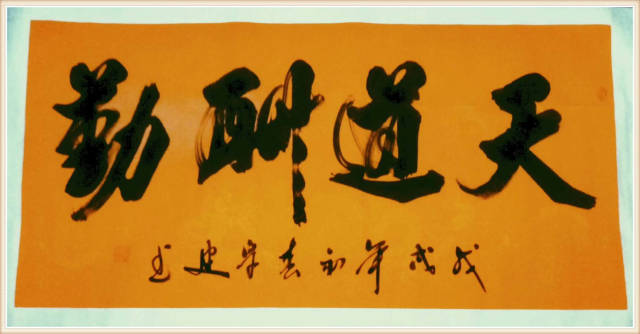 天道酬勤
戊戌年初春宋建书